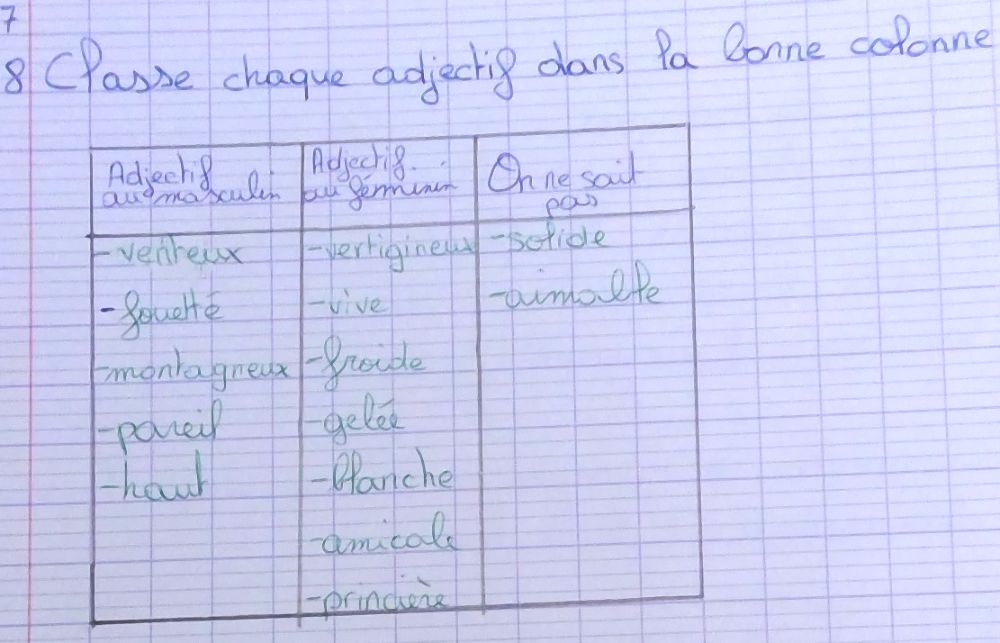 7
8 Classe chaque adjectif dans la bonne colonne
Adjectif au masculin
Adjectif au féminin
On ne sait pas
-venteux
-vertigineux
-solide
-fouetté
-vive
-aimable
-montagneux
-froide
-pareil
-gelée
-haut
-blanche
-amicale
-princière